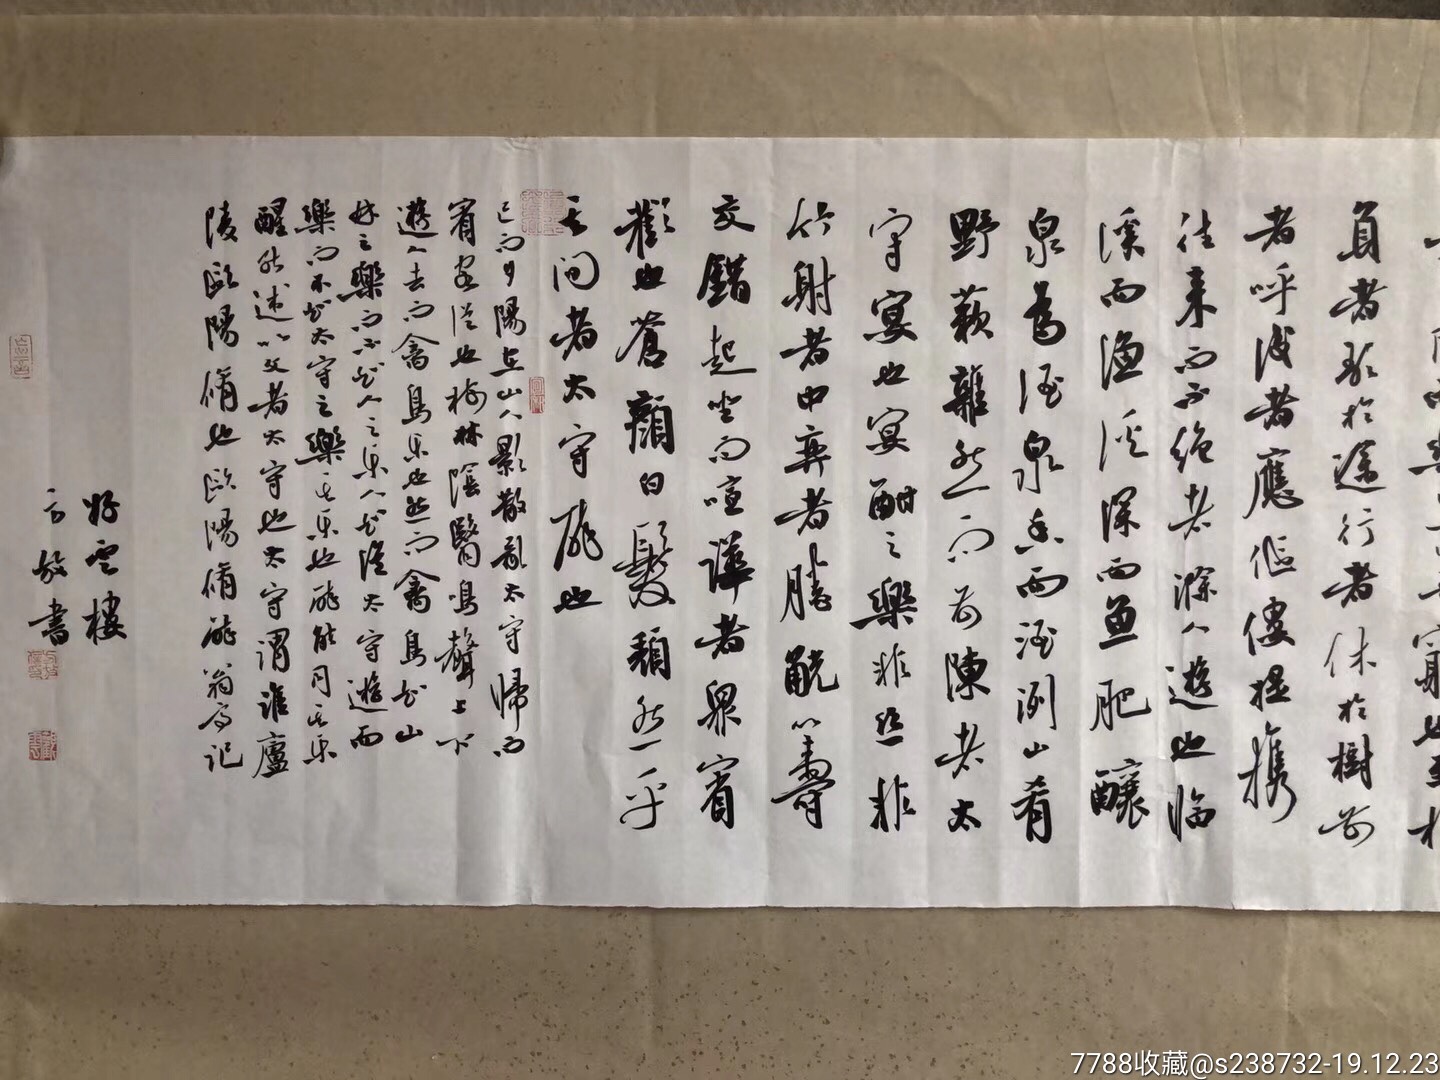 窮也至於
負者歌於途行者休於樹前
者呼後者應傴僂提攜
往來而不絕者滁人遊也臨
溪而漁溪深而魚肥釀
泉為酒泉香而酒洌山肴
野蔌雜然而前陳者太
守宴也宴酣之樂非絲非
竹射者中弈者勝觥籌
交錯起坐而喧譁者眾賓
歡也蒼顏白髮頹然乎
其間者太守醉也
已而夕陽在山人影散亂太守歸而
賓客從也樹林陰翳鳴聲上下
遊人去而禽鳥樂也然而禽鳥知山
林之樂而不知人之樂人知從太守遊而
樂而不知太守之樂其樂也醉能同其樂
醒能述以文者太守也太守謂誰廬
陵歐陽脩也歐陽脩醉翁亭記
好雲樓
書
7788收藏@s238732-19.12.23